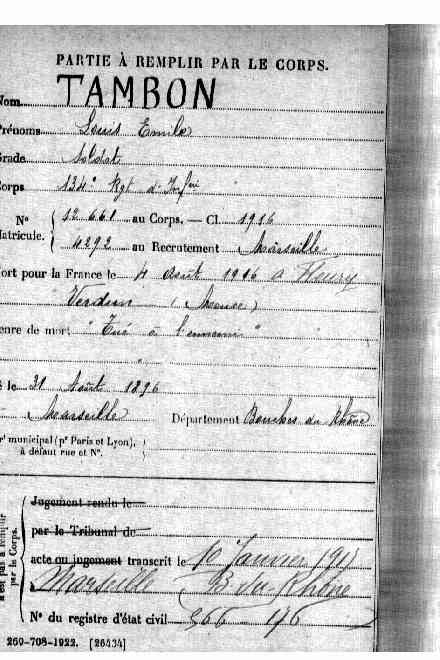 PARTIE À REMPLIR PAR LE CORPS.
Nom TAMBON
Prénoms Louis Emile
Grade Soldat
Corps 134e Rgt d'Infrie
No 12661 au Corps. — Cl. 1916
Matricule. 4292 au Recrutement Marseille
ort pour la France le 4 Août 1916 à Fleury
Verdun (Meuse)
enre de mort "Tué à l'ennemi"
é le 31 Août 1896
Marseille Département Bouches du Rhône
rt municipal (pr Paris et Lyon),
à défaut rue et No.
Jugement rendu le
par le Tribunal de
acte ou jugement transcrit le Janvier 1917
à Marseille B. du Rhône
No du registre d'état civil 176
est pas à remplir
par le Corps.
269-708-1922. [26434]